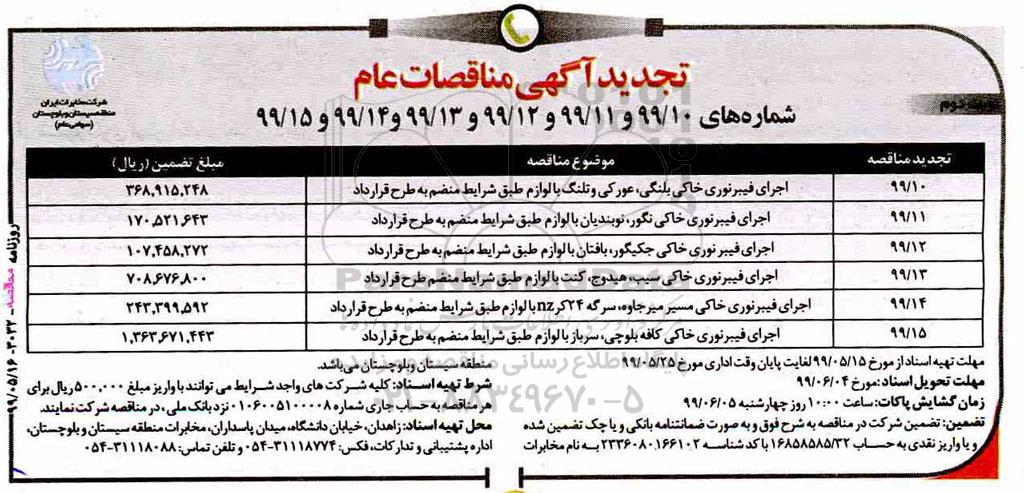 تجدید آگهی مناقصات عام
شماره‌های ۹۹/۱۰ و ۹۹/۱۱ و ۹۹/۱۲ و ۹۹/۱۳ و ۹۹/۱۴ و ۹۹/۱۵
نوبت دوم
شرکت مخابرات ایران
منطقه سیستان و بلوچستان
(سهامی عام)
تجدید مناقصه موضوع مناقصه مبلغ تضمین (ریال)
۹۹/۱۰ اجرای فیبرنوری خاکی پلنگی، عورکی و تلنگ با لوازم طبق شرایط منضم به طرح قرارداد ۳۶۸,۹۱۵,۲۴۸
۹۹/۱۱ اجرای فیبرنوری خاکی نگور، نوبندیان با لوازم طبق شرایط منضم به طرح قرارداد ۱۷۰,۵۲۱,۶۴۳
۹۹/۱۲ اجرای فیبرنوری خاکی جکیگور، بافتان با لوازم طبق شرایط منضم به طرح قرارداد ۱۰۷,۴۵۸,۲۷۲
۹۹/۱۳ اجرای فیبرنوری خاکی سیب، هیدوج، کنت با لوازم طبق شرایط منضم طرح قرارداد ۷۰۸,۶۷۶,۸۰۰
۹۹/۱۴ اجرای فیبرنوری خاکی مسیر میرجاوه، سرگه ۲۴کر nz با لوازم طبق شرایط منضم به طرح قرارداد ۲۴۳,۳۹۹,۵۹۲
۹۹/۱۵ اجرای فیبرنوری خاکی کافه بلوچی، سرباز با لوازم طبق شرایط منضم به طرح قرارداد ۱,۳۶۳,۶۷۱,۴۴۳
مهلت تهیه اسناد از مورخ ۹۹/۰۵/۱۵ لغایت پایان وقت اداری مورخ ۹۹/۰۵/۲۵
مهلت تحویل اسناد: مورخ ۹۹/۰۶/۰۴
زمان گشایش پاکات: ساعت ۱۰:۰۰ روز چهارشنبه ۹۹/۰۶/۰۵
تضمین: تضمین شرکت در مناقصه به شرح فوق و به صورت ضمانتنامه بانکی و یا چک تضمین شده
و یا واریز نقدی به حساب ۱۶۸۵۸۵۸۵/۳۲ با کد شناسه ۲۳۳۶۰۸۰۱۶۶۱۰۲ به نام مخابرات
منطقه سیستان و بلوچستان می‌باشد.
شرط تهیه اسناد: کلیه شرکت های واجد شرایط می توانند با واریز مبلغ ۵۰۰,۰۰۰ ریال برای
هر مناقصه به حساب جاری شماره ۰۱۰۶۰۰۵۱۰۰۰۰۸ نزد بانک ملی، در مناقصه شرکت نمایند.
محل تهیه اسناد: زاهدان، خیابان دانشگاه، میدان پاسداران، مخابرات منطقه سیستان و بلوچستان،
اداره پشتیبانی و تدارکات، فکس: ۳۱۱۱۸۷۷۴-۰۵۴ و تلفن تماس: ۳۱۱۱۸۰۸۸-۰۵۴
روزنامه مناقصه - ۳۰۳۲ - ۹۹/۰۵/۱۶
پایگاه اطلاع رسانی مناقصه و مزایده
۰۲۱-۸۸۳۴۹۶۷۰-۵